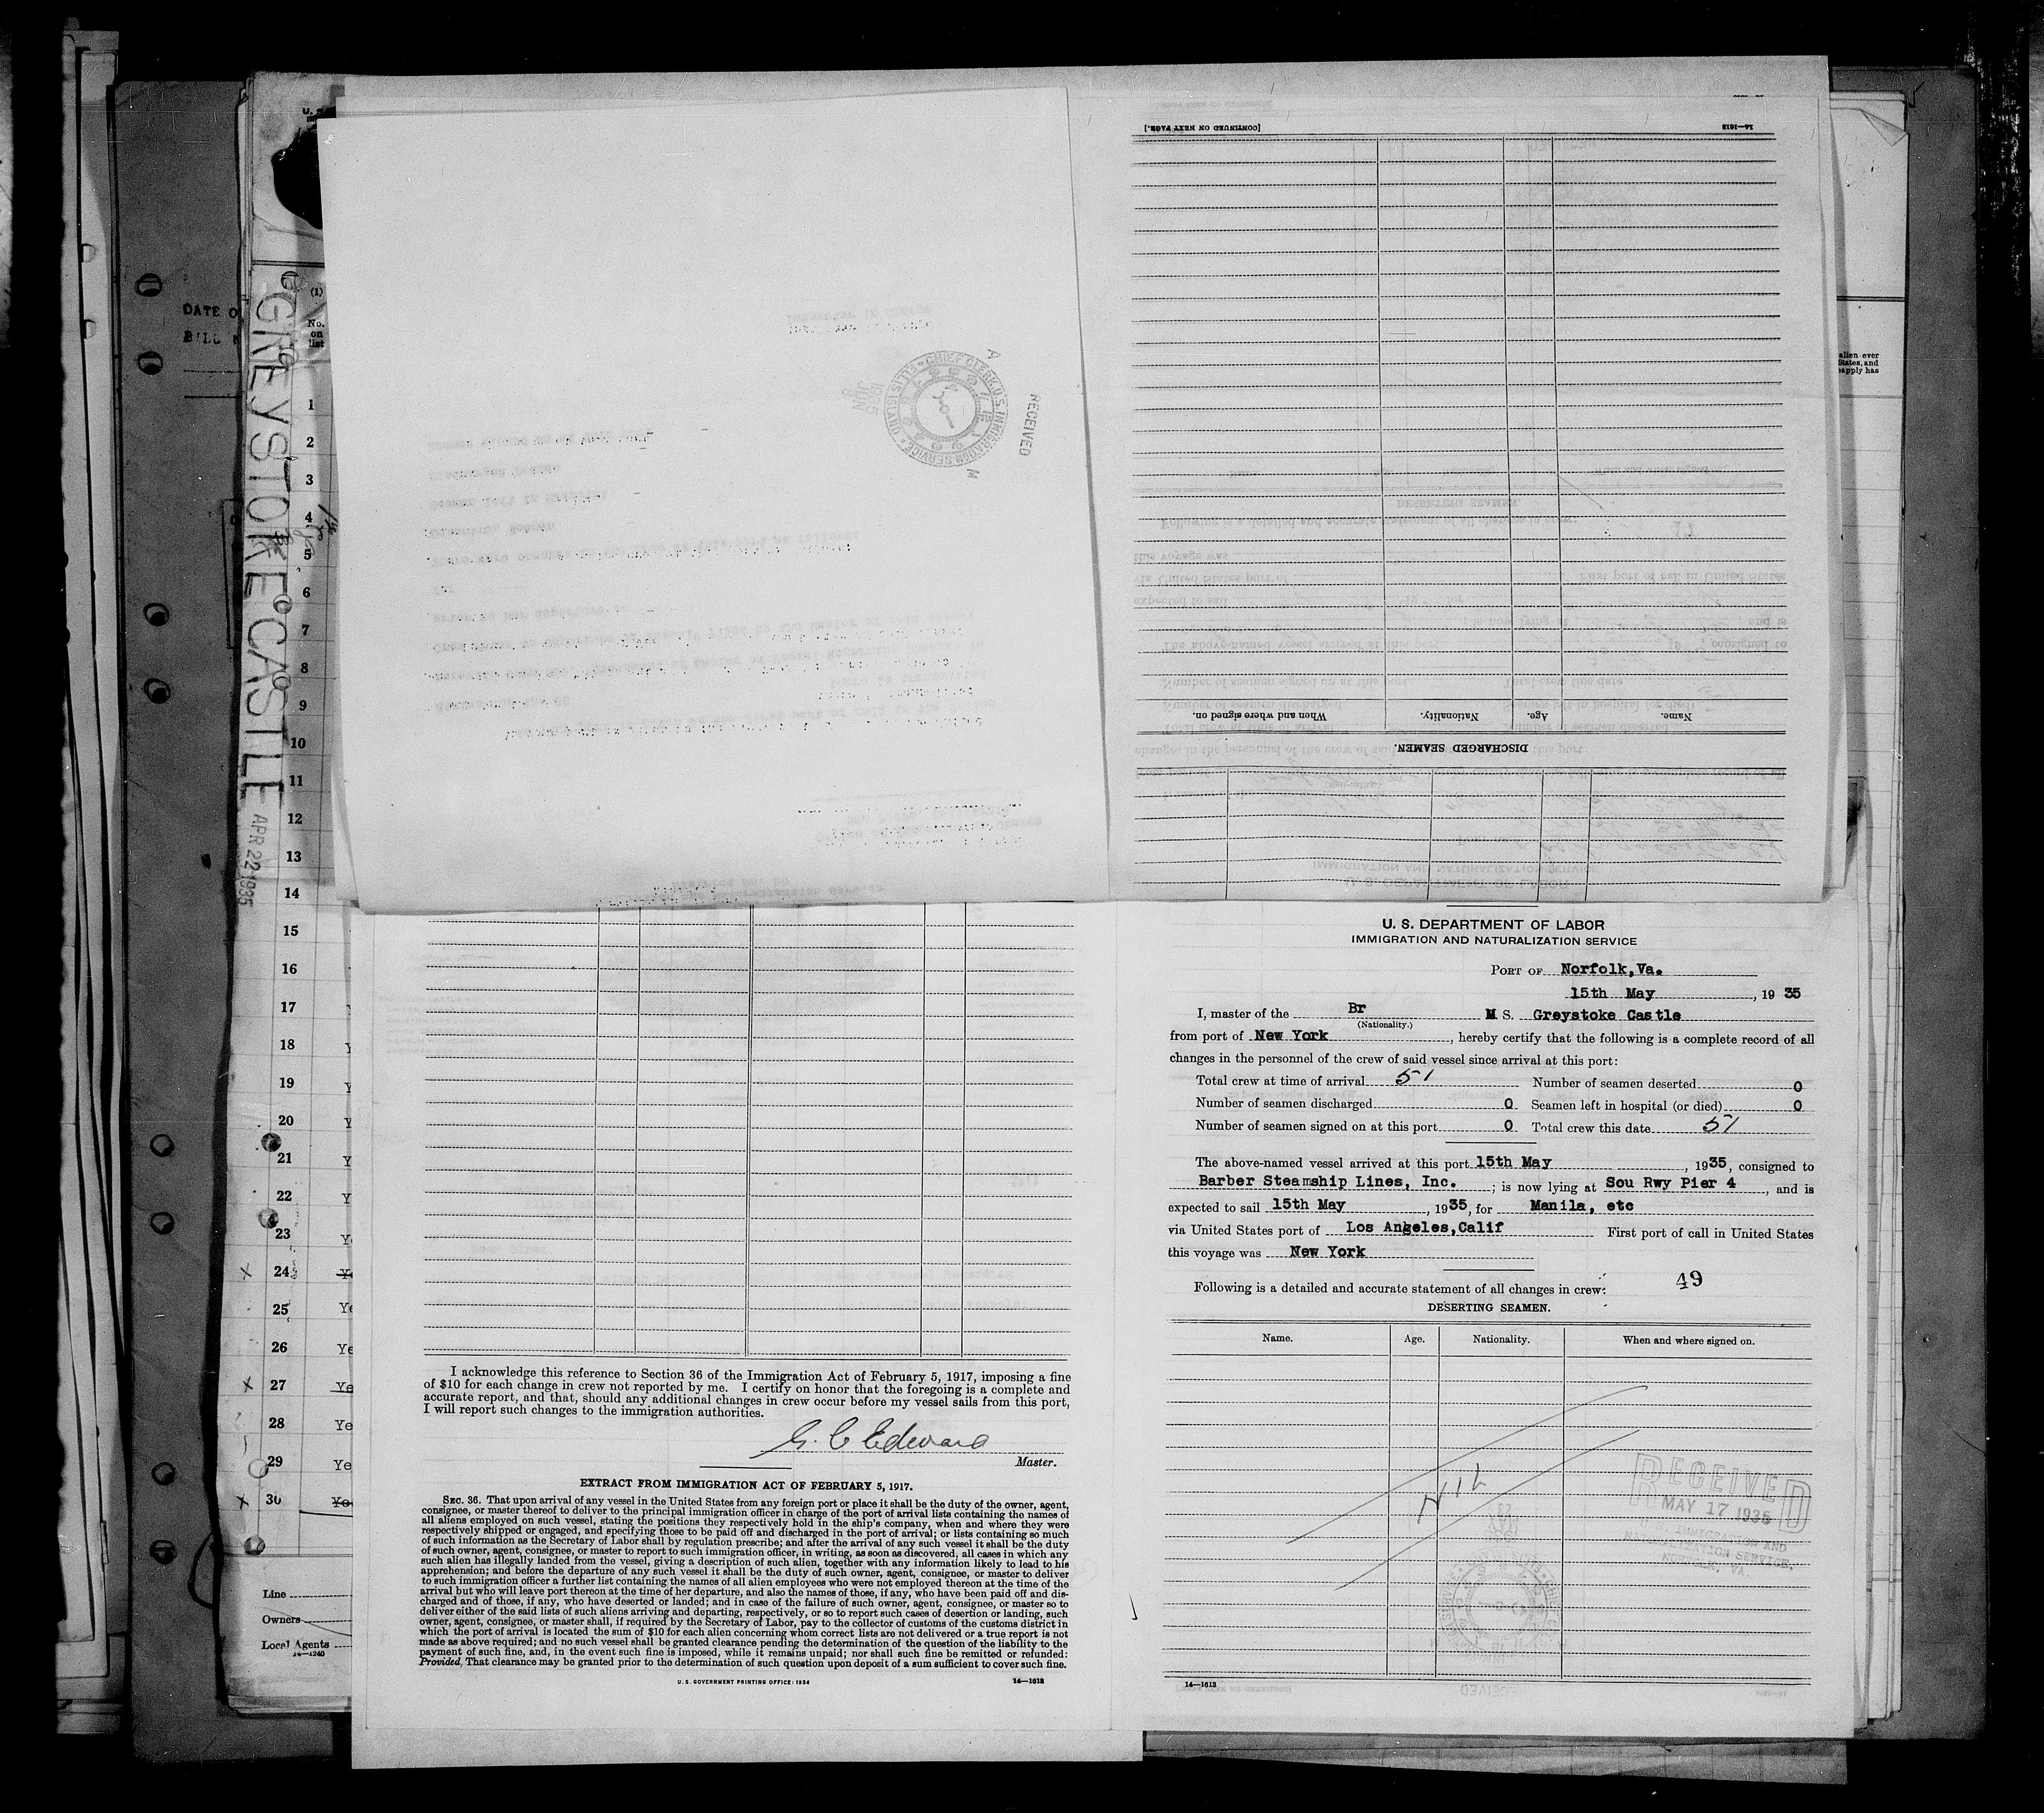 DATE O
BILL N
GREYSTOKE CASTLE APR 22 1935
(1)
No.
on
list
1
2
3
4
5
6
7
8
9
10
11
12
13
14
15
16
17
18
19
20
21
22
23
24
25
26
27
28
29
30
Line
Owners
Local Agents
14—1240
alien ever
States, and
reapply has
RECEIVED
CHIEF CLERK U.S. IMMIGRATION SERVICE
ELLIS ISLAND
JUN
1935
[CONTINUED ON NEXT PAGE.]
14—1613
When and where signed on.
Nationality.
Age.
Name.
DISCHARGED SEAMEN.
I acknowledge this reference to Section 36 of the Immigration Act of February 5, 1917, imposing a fine
of $10 for each change in crew not reported by me. I certify on honor that the foregoing is a complete and
accurate report, and that, should any additional changes in crew occur before my vessel sails from this port,
I will report such changes to the immigration authorities.
G. C Edward
Master.
EXTRACT FROM IMMIGRATION ACT OF FEBRUARY 5, 1917.
SEC. 36. That upon arrival of any vessel in the United States from any foreign port or place it shall be the duty of the owner, agent,
consignee, or master thereof to deliver to the principal immigration officer in charge of the port of arrival lists containing the names of
all aliens employed on such vessel, stating the positions they respectively hold in the ship's company, when and where they were
respectively shipped or engaged, and specifying those to be paid off and discharged in the port of arrival; or lists containing so much
of such information as the Secretary of Labor shall by regulation prescribe; and after the arrival of any such vessel it shall be the duty
of such owner, agent, consignee, or master to report to such immigration officer, in writing, as soon as discovered, all cases in which any
such alien has illegally landed from the vessel, giving a description of such alien, together with any information likely to lead to his
apprehension; and before the departure of any such vessel it shall be the duty of such owner, agent, consignee, or master to deliver
to such immigration officer a further list containing the names of all alien employees who were not employed thereon at the time of the
arrival but who will leave port thereon at the time of her departure, and also the names of those, if any, who have been paid off and dis-
charged and of those, if any, who have deserted or landed; and in case of the failure of such owner, agent, consignee, or master so to
deliver either of the said lists of such aliens arriving and departing, respectively, or so to report such cases of desertion or landing, such
owner, agent, consignee, or master shall, if required by the Secretary of Labor, pay to the collector of customs of the customs district in
which the port of arrival is located the sum of $10 for each alien concerning whom correct lists are not delivered or a true report is not
made as above required; and no such vessel shall be granted clearance pending the determination of the question of the liability to the
payment of such fine, and, in the event such fine is imposed, while it remains unpaid; nor shall such fine be remitted or refunded:
Provided, That clearance may be granted prior to the determination of such question upon deposit of a sum sufficient to cover such fine.
U. S. GOVERNMENT PRINTING OFFICE: 1934
14—1613
U. S. DEPARTMENT OF LABOR
IMMIGRATION AND NATURALIZATION SERVICE
PORT OF Norfolk,Va.
15th May , 19 35
I, master of the Br M S. Greystoke Castle
(Nationality.)
from port of New York , hereby certify that the following is a complete record of all
changes in the personnel of the crew of said vessel since arrival at this port:
Total crew at time of arrival 51 Number of seamen deserted 0
Number of seamen discharged 0 Seamen left in hospital (or died) 0
Number of seamen signed on at this port 0 Total crew this date 51
The above-named vessel arrived at this port 15th May , 1935, consigned to
Barber Steamship Lines, Inc. ; is now lying at Sou Rwy Pier 4 , and is
expected to sail 15th May , 1935, for Manila, etc
via United States port of Los Angeles,Calif First port of call in United States
this voyage was New York
49
Following is a detailed and accurate statement of all changes in crew:
DESERTING SEAMEN.
Name. Age. Nationality. When and where signed on.
NIL
RECEIVED
MAY 17 1935
IMMIGRATION AND
NATURALIZATION SERVICE.
NORFOLK, VA.
14—1613